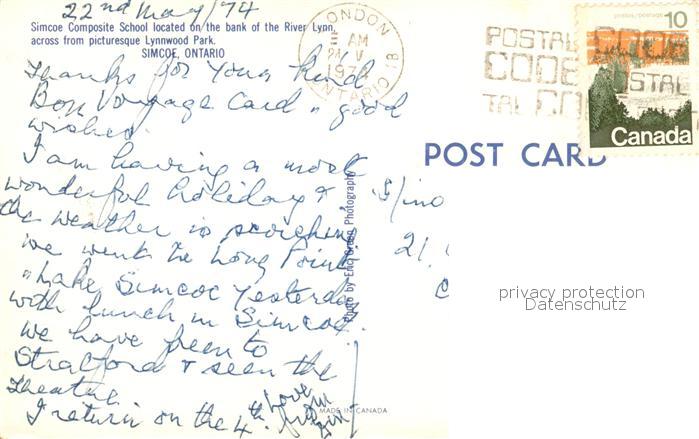 22nd May/74
Simcoe Composite School located on the bank of the River Lynn,
across from picturesque Lynnwood Park.
SIMCOE, ONTARIO
Thanks for your kind
Bon Voyage Card & good
wishes.
I am having a most
wonderful holiday &
the weather is scorching
we went to Long Point
& Lake Simcoe yesterday
with lunch in Simcoe.
we have been to
Stratford & seen the
Theatre.
I return on the 4th.
Love from
Photo by Eric Green Photography
MADE IN CANADA
LONDON
AM
V
ONTARIO
POSTAL
CODE
POSTAL
CODE
postes/postage
10
Canada
POST CARD
21,
privacy protection
Datenschutz